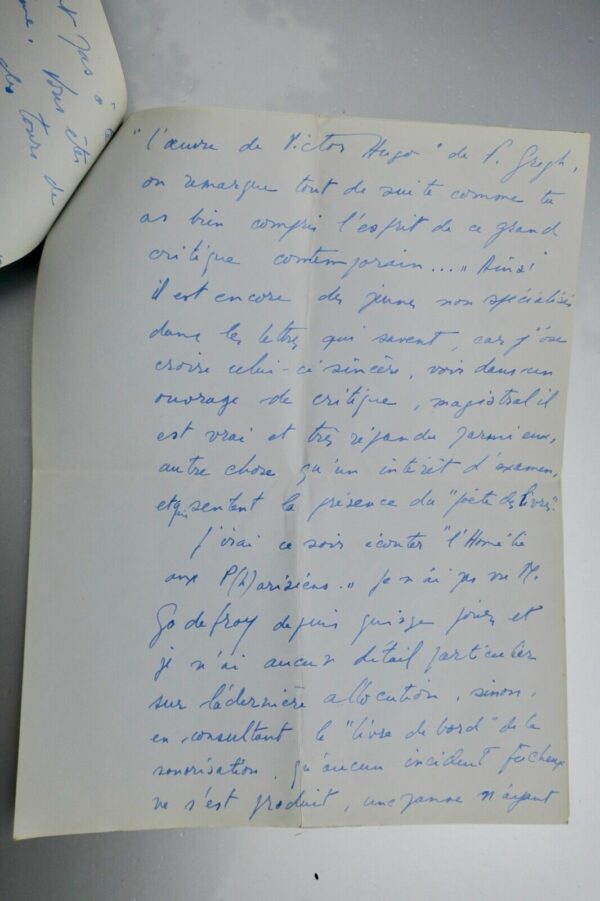 nt pas à
me. Vous êtes
des tours de
"l'œuvre de Victor Hugo" de F. Gregh,
on remarque tout de suite comme tu
as bien compris l'esprit de ce grand
critique contemporain..." Ainsi
il est encore des jeunes non spécialisés
dans les lettres qui savent, car j'ose
croire celui-ci sincère, voir dans un
ouvrage de critique, magistral il
est vrai et très répandu parmi eux,
autre chose qu'un intérêt d'examen,
et qui sentent la présence du "poète des livres".
J'irai ce soir écouter "l'Homélie
aux P(h)arisiens." Je n'ai pas vu M.
Godefroy depuis quinze jours et
je n'ai aucun détail particulier
sur la dernière allocution, sinon,
en consultant le "livre de bord" de la
sonorisation, qu'aucun incident fâcheux
ne s'est produit, une panne n'ayant